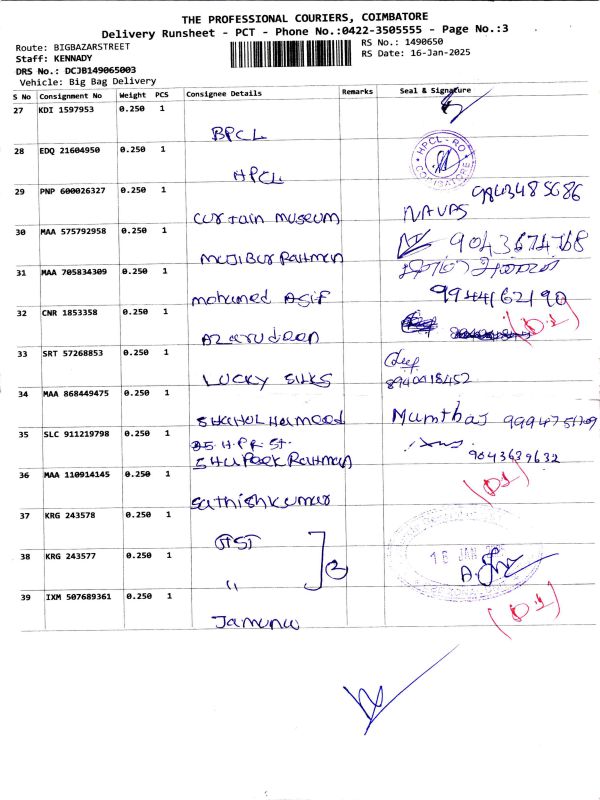 THE PROFESSIONAL COURIERS, COIMBATORE
Delivery Runsheet - PCT - Phone No.:0422-3505555 - Page No.:3
Route: BIGBAZARSTREET
RS No.: 1490650
Staff: KENNADY
RS Date: 16-Jan-2025
DRS No.: DCJB149065003
Vehicle: Big Bag Delivery
S No Consignment No Weight PCS Consignee Details Remarks Seal & Signature
27 KDI 1597953 0.250 1
BPCL
28 EDQ 21604950 0.250 1
HPCL
HPCL - RO
COIMBATORE
29 PNP 600026327 0.250 1
curtain museum
NAVAS 9843485686
30 MAA 575792958 0.250 1
mujibur Rahman
9043674768
31 MAA 705834309 0.250 1
mohamed Asif
9944162190
32 CNR 1853358 0.250 1
Azarudeen
(D.S)
33 SRT 57268853 0.250 1
LUCKY SILKS
8940018452
34 MAA 868449475 0.250 1
SHAHUL Hameed
Mumthas
35 SLC 911219798 0.250 1
35. H.P.R. St.
Rahman
9043639632
36 MAA 110914145 0.250 1
Sathishkumar
(DS)
37 KRG 243578 0.250 1
GST
38 KRG 243577 0.250 1
〃
2
16 JAN
39 IXM 507689361 0.250 1
Jamuna
(D.S)